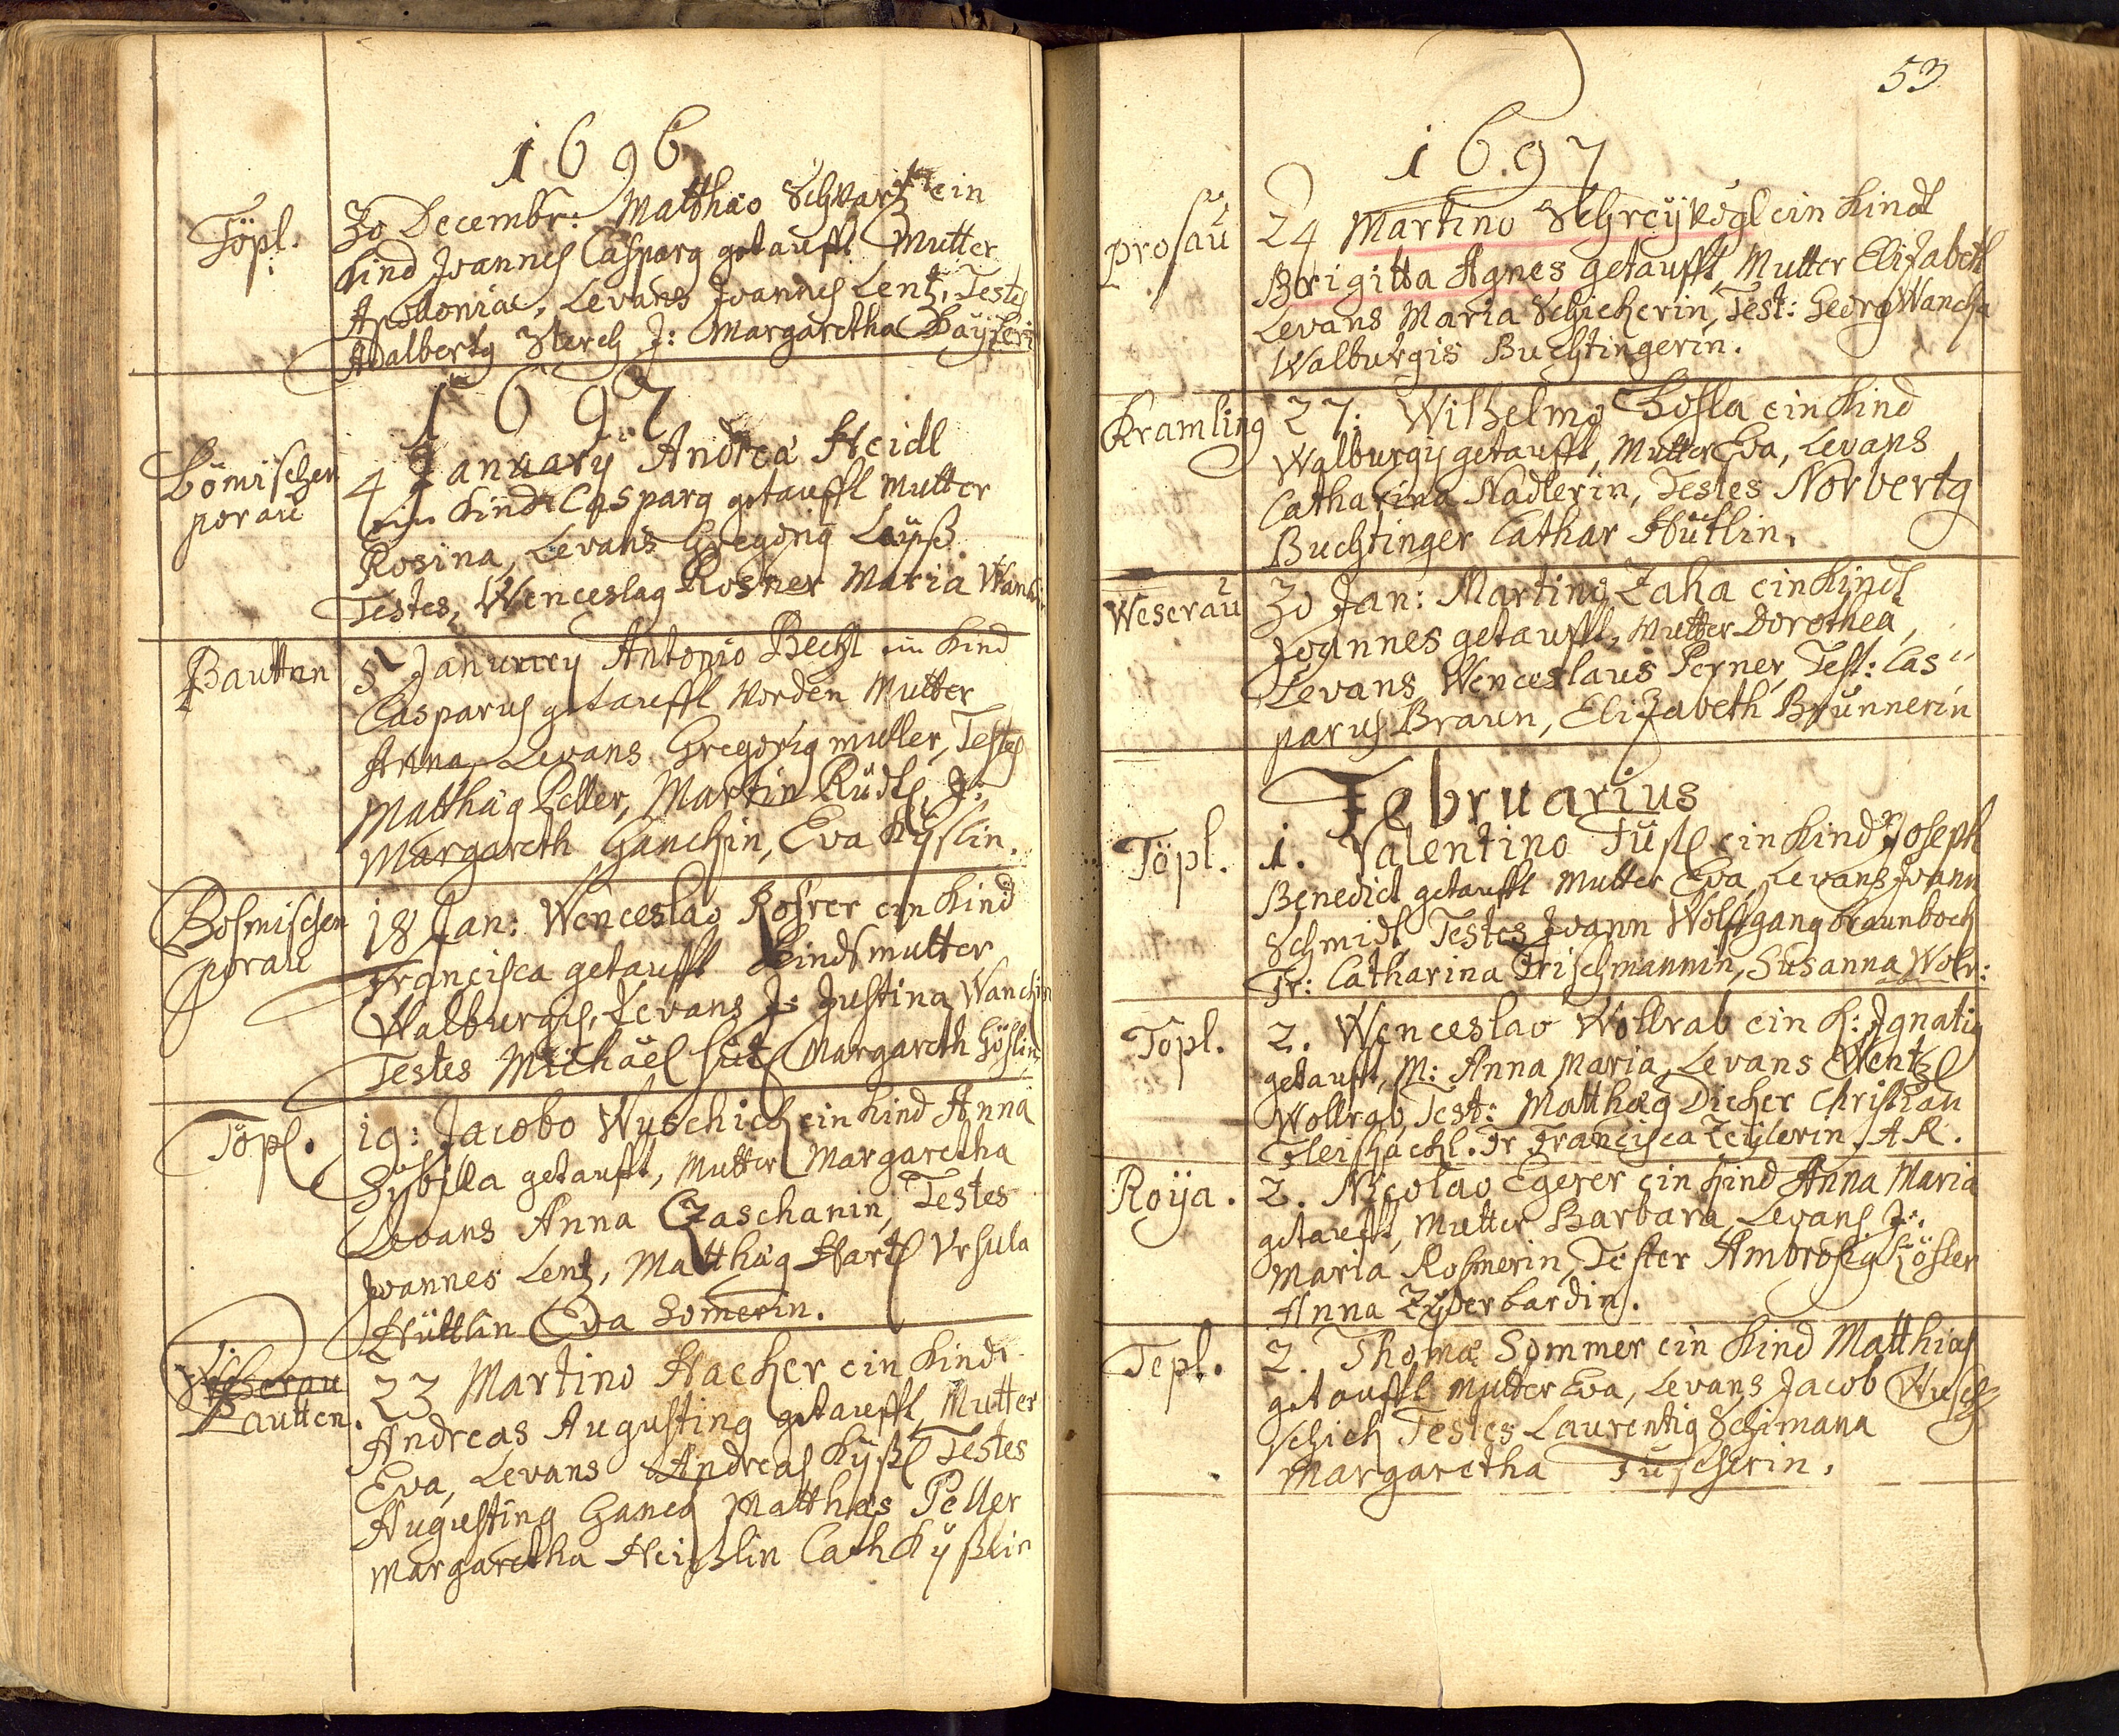 1696
Töpl.
30 Decembr: Matthæo Schwartz ein
Kind Joannes Casparg getaufft Mutter
Apolonia, Levans Joannes Lentz, Testes
Adalbertg Sterch J: Margaretha
1697
Bömischen
porau
4 January Andrea Heidl
ein Kindt Casparg getaufft Mutter
Rosina, Levans Gregorig Lauß.
Testes, Wenceslag Rosner Maria
Pauttnn
5 January Antonio Bechl ein Kind
Casparus getaufft worden Mutter
Anna, Levans Gregorig muller, Testes
Matthæg Peller, Martin Rudl, J:
Margareth Hanchin, Eva Kyslin.
Bohmischen
porau
18 Jan: Wenceslao Rosner ein Kind
Francisca getaufft Kindsmutter
Walburgis, Levans J: Justina Wanchin
Testes Michael Margareth
Töpl.
19: Jacobo Wuschich ein Kind Anna
Sybilla getaufft, Mutter Margaretha
Levans Anna Czaschanin, Testes
Joannes Lentz, Matthæg Hartl Vrsula
Hüttlin Eva Somerin.
Weserau
Pautten.
23 Martino Hacker ein Kindt
Andreas Augusting getaufft, Mutter
Eva, Levans Andreas Kyßl Testes
Augusting Hanca Matthæs Peller
Margaretha Heißlin Cath Kyßlin
53
1697
prosau
24 Martino Schreyvogl ein Kindt
Brigitta Agnes getaufft, Mutter Elisabeth
Levans Maria Schickerin, Test: Georg Wancha
Walburgis Buchtingerin.
Kramling
27. Wilhelmo Hosla ein Kind
Walburgis getaufft, Mutter Eva, Levans
Catharina Nadlerin, Testes Norbertg
Buchtinger Cathar Hütlin.
Weserau
30 Jan: Martino Zaha ein Kindt
Joannes getaufft, Mutter Dorothea,
Levans Wenceslaus Perner, Test: Cas=
parus Braun, Elisabeth Brunnerin
Februarius
Töpl.
1. Valentino Fußl ein Kind Joseph
Benedict getaufft Mutter Eva Levans Joann
Schmidt, Testes Joann Wolfgang braunbock
Fr: Catharina Frischmannin, Susanna Wolr:
Töpl.
2. Wenceslao Wollrab ein K: Ignatig
getaufft, M: Anna Maria, Levans Wentzl
Wollrab, Test: Matthæg Dicher Christian
Fleischackl. Fr Francisca Zeidlerin. A R.
Roÿa.
2. Nicolao Egerer ein Kind Anna Maria
getaufft, Mutter Barbara, Levans J:
Maria Rosnerin, Tester Ambrosig Hösler
Anna
Tepl.
2. Thoma Sommer ein Kind Matthias
getaufft Mutter Eva, Levans Jacob Wusch
schich Testes Laurentig Schimana
Margaretha Fuscherin.